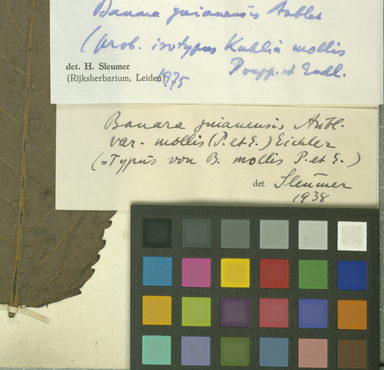 Banara guianensis Aublet
(prob. isotypus Kuhlia mollis
Poepp. et Endl.
det. H. Sleumer
(Rijksherbarium, Leiden) 1975
Banara guianensis Aubl.
var. mollis (P. et E.) Eichler
(= Typus von B. mollis P. et E.)
det. Sleumer
1938